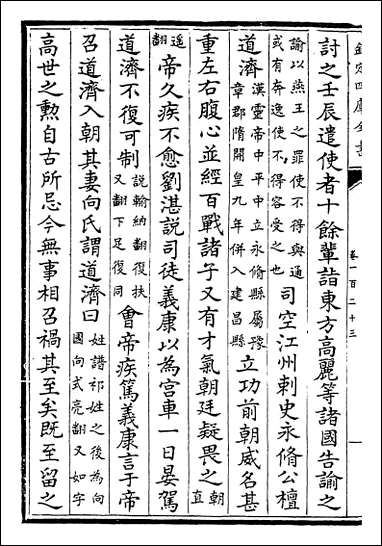 欽定四庫全書
卷一百二十三
一
討之壬辰遣使者十餘輩詣東方高麗等諸國告諭之
諭以燕王之罪使不得與通或有奔逸使不得容受之也司空江州刺史永脩公檀
道濟漢靈帝中平中立永脩縣屬豫章郡隋開皇九年併入建昌縣立功前朝威名甚
重左右腹心並經百戰諸子又有才氣朝廷疑畏之朝直
遥翻帝久疾不愈劉湛說司徒義康以為宮車一日晏駕
道濟不復可制說輸納翻復扶又翻下足復同會帝疾篤義康言于帝
召道濟入朝其妻向氏謂道濟曰姓譜祁姓之後為向國向式亮翻又如字
高世之勲自古所忌今無事相召禍其至矣既至留之